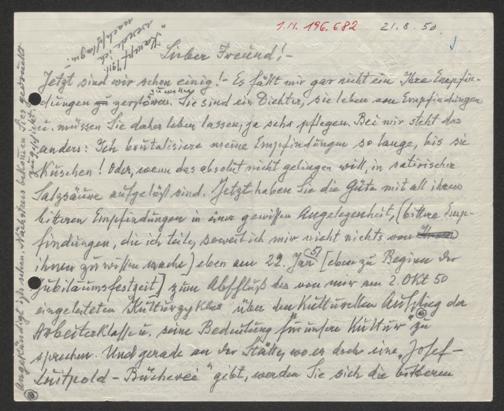 I.N. 196.682
21.8.50.
Lieber Freund! –
Jetzt sind wir schon einig! – Es fällt mir gar nicht ein Ihre Empfin-
dungen zu zerstören. Sie sind ein Dichter, sie leben von Empfindungen
u. müssen Sie daher leben lassen, ja sehr pflegen. Bei mir steht das
anders: Ich brutalisiere meine Empfindungen so lange, bis sie
kuschen! Oder, wenn das absolut nicht gelingen will, in satirischer
Salzsäure aufgelöst sind. Jetzt haben Sie die Güte mit all ihren
bitteren Empfindungen in einer gewissen Angelegenheit, (bittere Emp-
findungen, die ich teile, soweit ich mir nicht nichts von
ihnen zu wissen mache) eben am 22. Jän 51 [eben zu Beginn der
Jubiläumsfestzeit,] zum Abschluß des von mir am 2. Okt 50
eingeleiteten Kulturzyklus über den kulturellen Aufstieg der
Arbeiterklasse u. seine Bedeutung für unsere Kultur zu
sprechen. Und gerade an der Stätte, wo es doch eine „Josef-
Luitpold-Bücherei" gibt, werden Sie sich die bitteren